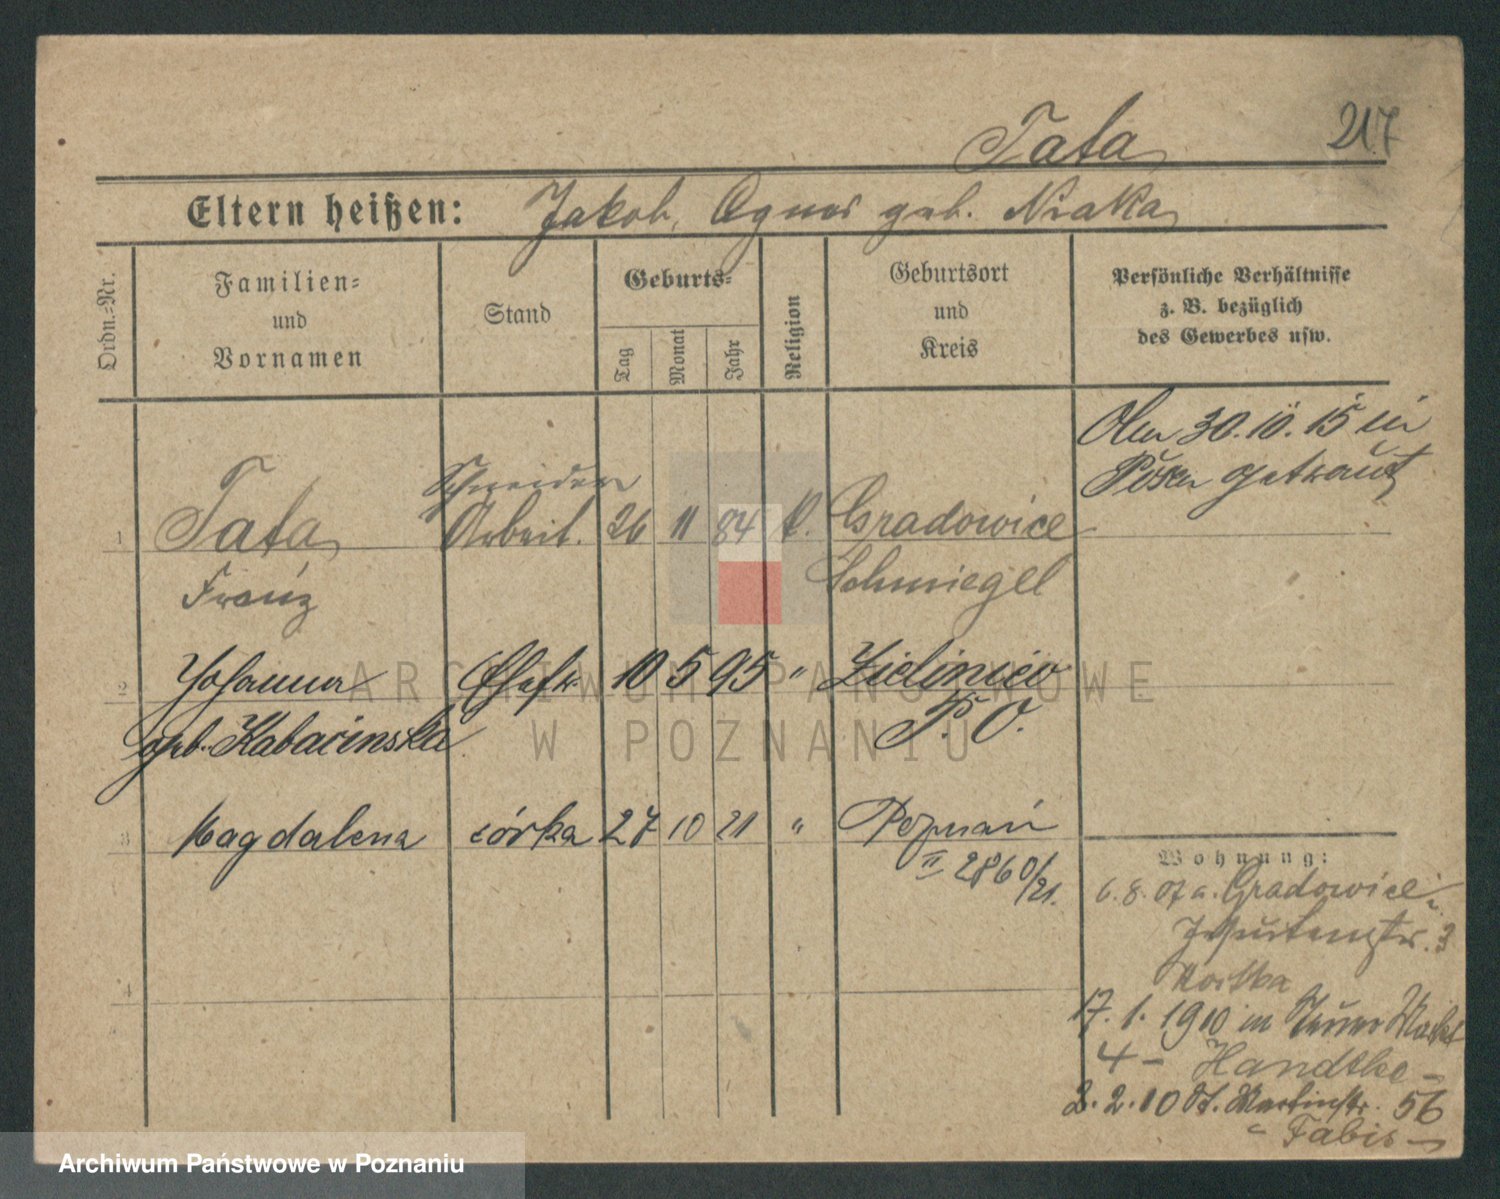 Tafa
217
Eltern heißen: Jakob, Agnes geb.
Ordn.=Nr.
Familien=
und
Vornamen
Stand
Geburts=
Tag
Monat
Jahr
Religion
Geburtsort
und
Kreis
Persönliche Verhältnisse
z. B. bezüglich
des Gewerbes usw.
Am 30.10.15 in
Posen getraut
Schneider
1 Tafa Arbeit. 26 11 84 k. Gradowice
Franz Schmiegel
2 Johanna Ehefr. 10 5 95 "
geb. Kabacinska P. O.
3 Magdalena córka 27 10 21 " Poznań
II 2860/21.
Wohnung:
6.8.07 a. Gradowice
3
4
17. 1. 1910 in Neuer Markt
4 - Handtke -
2.2.10 St. Martinstr. 56
" Fabis -
ARCHIWUM PAŃSTWOWE
W POZNANIU
Archiwum Państwowe w Poznaniu